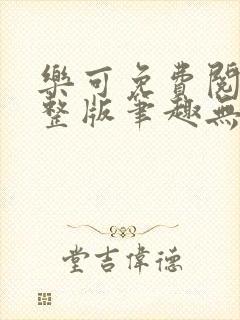 樂可免費閱
整版筆趣無
堂吉偉德